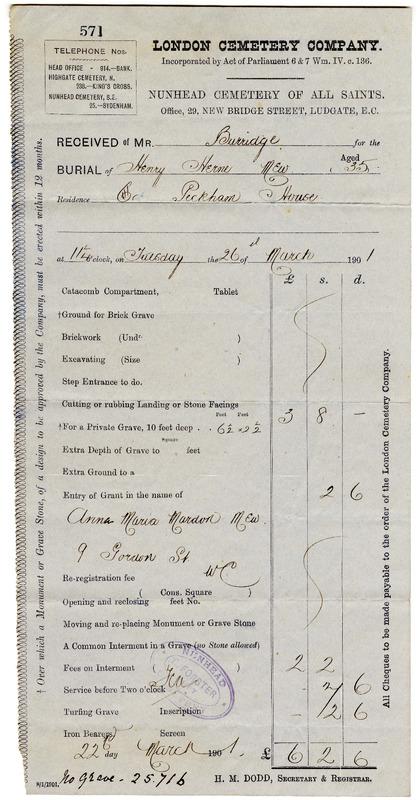 571
TELEPHONE Nos.
HEAD OFFICE - 914.—BANK.
HIGHGATE CEMETERY, N.
238.—KING'S CROSS.
NUNHEAD CEMETERY, S.E.
25.—SYDENHAM.
LONDON CEMETERY COMPANY.
Incorporated by Act of Parliament 6 & 7 Wm. IV. c. 136.
NUNHEAD CEMETERY OF ALL SAINTS.
Office, 29, NEW BRIDGE STREET, LUDGATE, E.C.
RECEIVED OF MR. Burridge for the
BURIAL of Henry Herne Mew Aged 35
Residence Peckham House
at 11¼ o'clock, on Tuesday the 26 March 1901
£ s. d.
Catacomb Compartment, Tablet
†Ground for Brick Grave
Brickwork (Under )
Excavating (Size )
Step Entrance to do.
Cutting or rubbing Landing or Stone Facings
Feet Feet
†For a Private Grave, 10 feet deep . 6½ × 2½ 3 8 —
Square
Extra Depth of Grave to feet
Extra Ground to a
Entry of Grant in the name of 2 6
Anna Maria Mardon Mew
9 Gordon St
WC
Re-registration fee
( Cons. Square )
Opening and reclosing feet No.
Moving and re-placing Monument or Grave Stone
A Common Interment in a Grave (no Stone allowed)
Fees on Interment ( ) 2 2
Service before Two o'clock 7 6
Turfing Grave Inscription 2 6
Iron Bearers) Screen
22 day March 1901. £ 6 2 6
NUNHEAD
FORSTER
8/1/1901. No grave - 25716
H. M. DODD, SECRETARY & REGISTRAR.
† Over which a Monument or Grave Stone, of a design to be approved by the Company, must be erected within 12 months.
All Cheques to be made payable to the order of the London Cemetery Company.